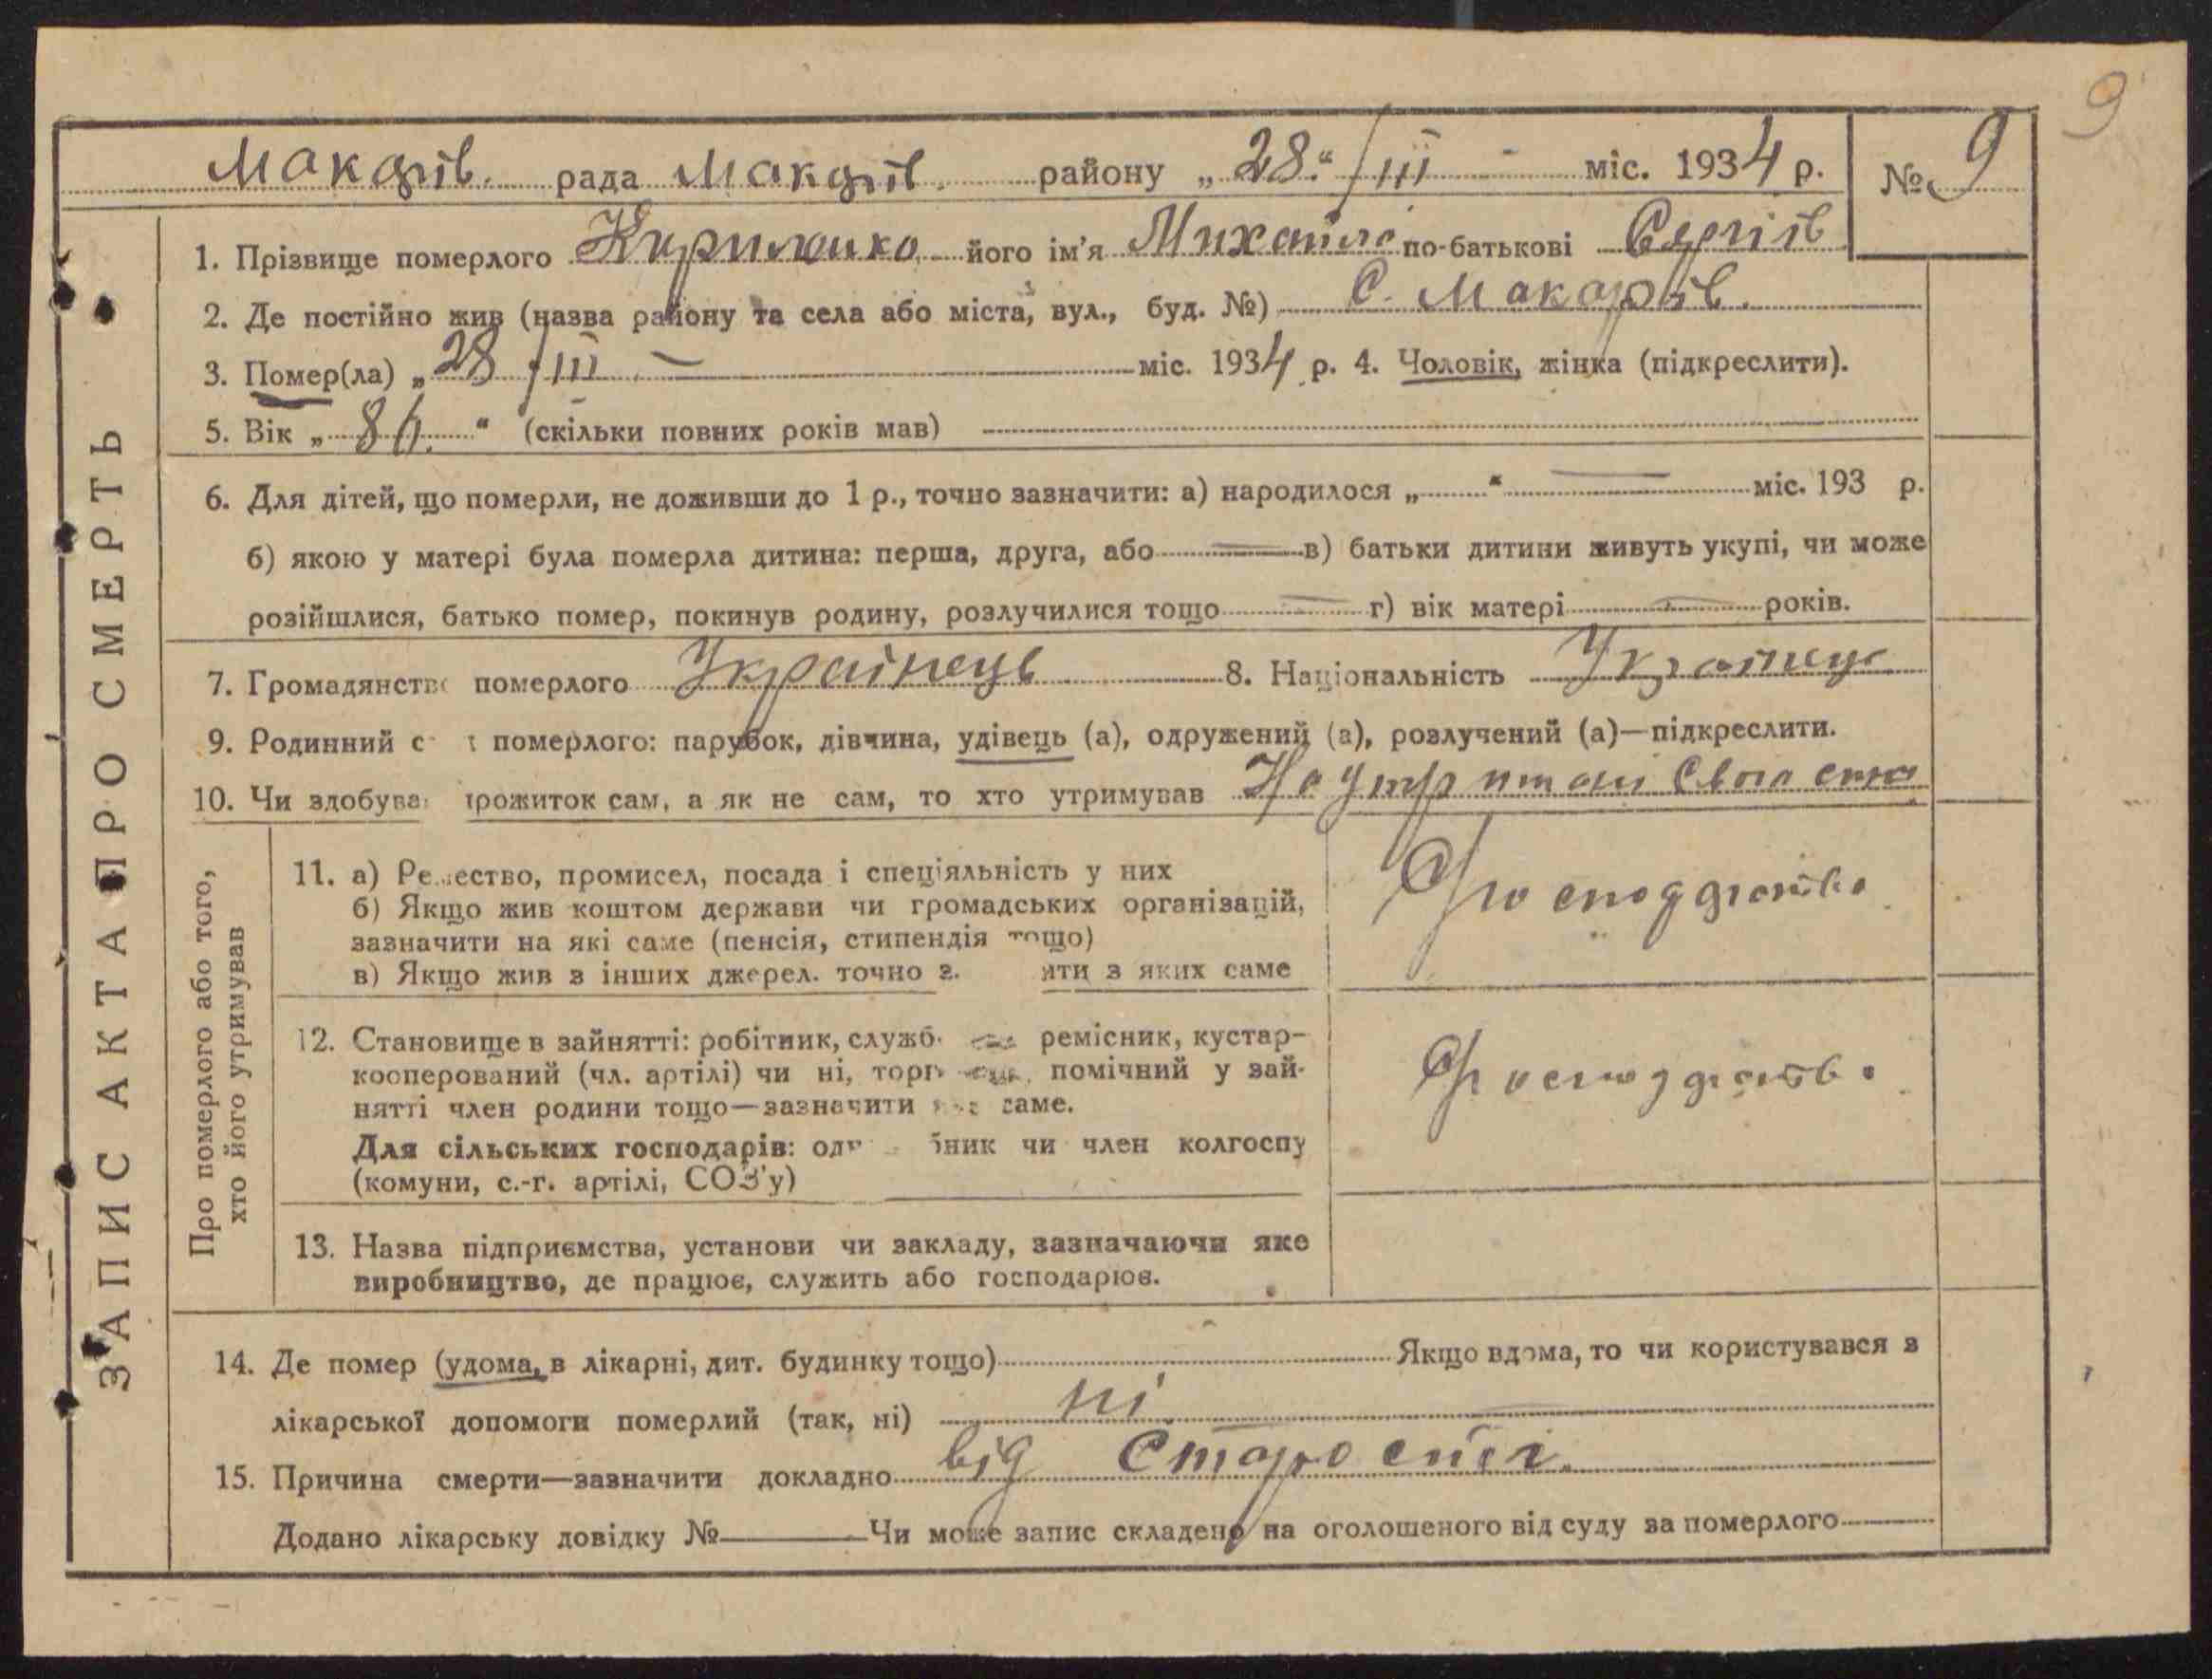 9
Макарів. рада Макарів. району „28.“/III міс. 1934 р. № 9
1. Прізвище померлого Кириленко його ім'я Михайло по-батькові Сергіїв
2. Де постійно жив (назва району та села або міста, вул., буд. №) С. Макарів.
3. Помер(ла) „28/III — міс. 1934 р. 4. Чоловік, жінка (підкреслити).
5. Вік „ “ (скільки повних років мав)
6. Для дітей, що померли, не доживши до 1 р., точно зазначити: а) народилося „ “ — міс. 193 р.
б) якою у матері була померла дитина: перша, друга, або — в) батьки дитини живуть укупі, чи може
розійшлися, батько помер, покинув родину, розлучилися тощо — г) вік матері — років.
7. Громадянство померлого Українець 8. Національність Українець
9. Родинний с т померлого: парубок, дівчина, удівець (а), одружений (а), розлучений (а)—підкреслити.
10. Чи здобува прожиток сам, а як не сам, то хто утримував На утримані Свого сина
ЗАПИС АКТА ПРО СМЕРТЬ
Про померлого або того,
хто його утримував
11. а) Ремество, промисел, посада і спеціяльність у них
б) Якщо жив коштом держави чи громадських організацій,
зазначити на які саме (пенсія, стипендія тощо)
в) Якщо жив з інших джерел. точно з. ити з яких саме
12. Становище в зайнятті: робітник, служб. ремісник, кустар-
кооперований (чл. артілі) чи ні, торг помічний у зай-
нятті член родини тощо—зазначити саме.
Для сільських господарів: од бник чи член колгоспу
(комуни, с.-г. артілі, СОЗ'у)
13. Назва підприємства, установи чи закладу, зазначаючи яке
виробництво, де працює, служить або господарює.
14. Де помер (удома, в лікарні, дит. будинку тощо) Якщо вдома, то чи користувався з
лікарської допомоги померлий (так, ні) ні
15. Причина смерти—зазначити докладно від Старости.
Додано лікарську довідку № Чи може запис складено на оголошеного від суду за померлого